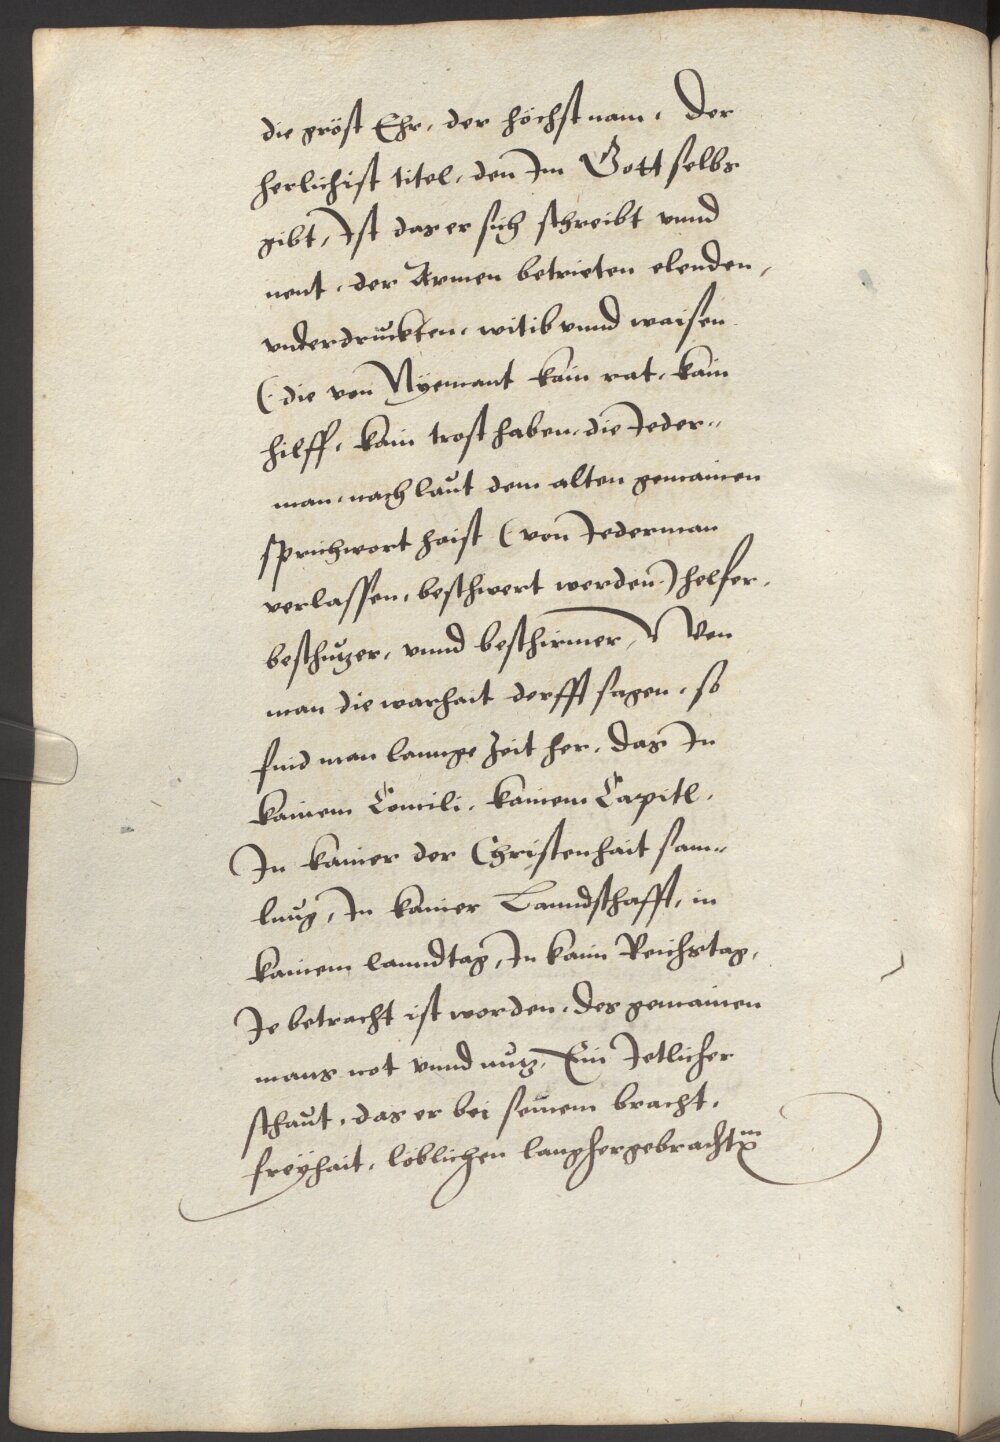 die gröst Ehr, der höchst nam, Der
herlichist titel, den Im Gott selbs
gibt, Ist das er sich schreibt vnnd
nent, der Armen betrieten elenden,
vnderdruckten, witib vnnd waisen
(die von Nyemant kain rat, kain
hilff, kain trost haben, die Jeder=
man, nach laut dem alten gemainen
sprichwort haist (von Jederman
verlassen, beschwert werden) helfer,
beschutzer, vnnd beschirmer, Wen
man die warhait derfft sagen, so
find man lannge Zeit her, das In
kainem Concili, kainem Capitl,
In kainer der Christenhait sam=
lung, In kainer Lanndschafft, in
kainem lanndtag, In kain Reichstag,
Je betracht ist worden, des gemainen
mans not vnnd nutz, Ein Jetlicher
schaut, das er bei seinem bracht,
freyhait, loblichen langhergebrachtm